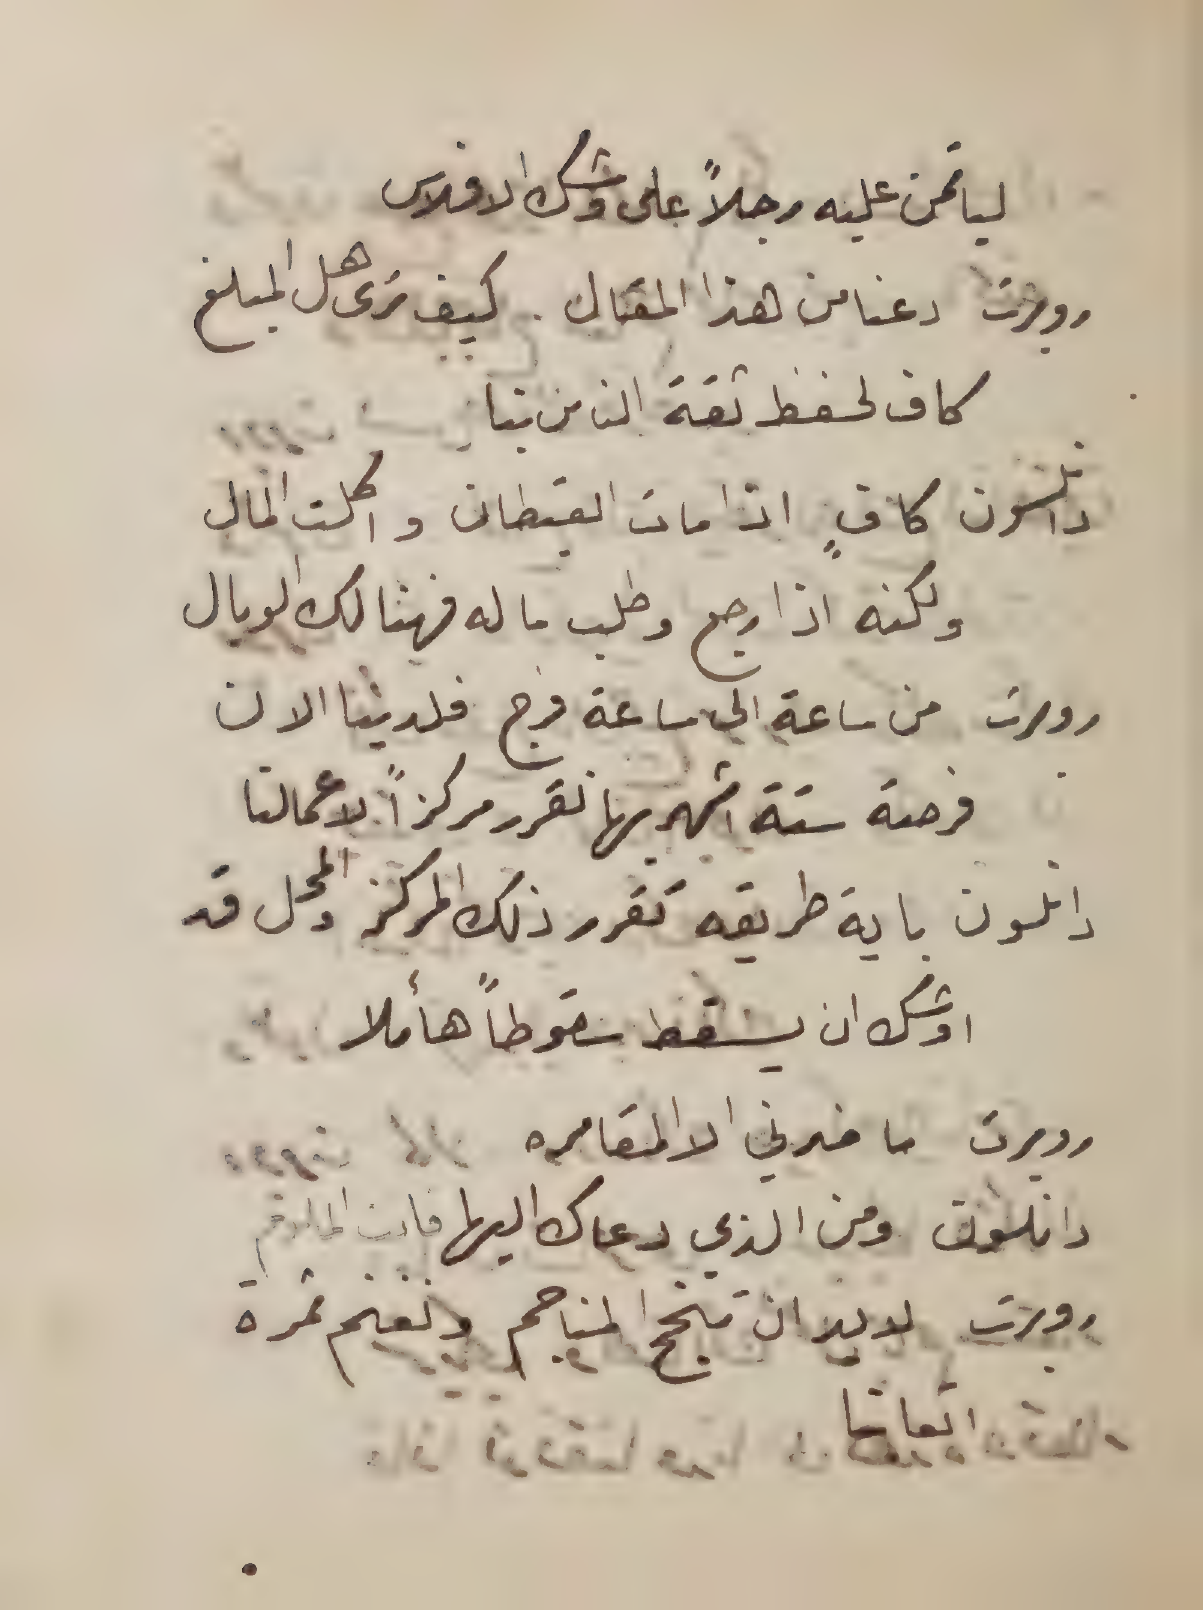 ليأتمن عليه رجلاً على وشك الافلاس
روبرت دعنا من هذا المقال . كيف ترى هل المبلغ
كاف لحفظ ثقة الناس بنا
دانلسون كافٍ اذا مات القبطان واكلت المال
ولكنه اذا رجع وطلب ماله فهنالك الوبال
روبرت من ساعة الى ساعة فرج فلدينا الان
فرصة ستة اشهر بها نقرر مركزاً لاعمالنا
دانلسون باية طريقه تقرر ذلك المركز والمحل قد
اوشك ان يسقط سقوطاً هائلا
روبرت ما ضرني الا المقامره
دانلسون ومن الذي دعاك اليها فانت الملام
روبرت لا بد ان تنجح المناجم ونغنم ثمرة
اتعابنا